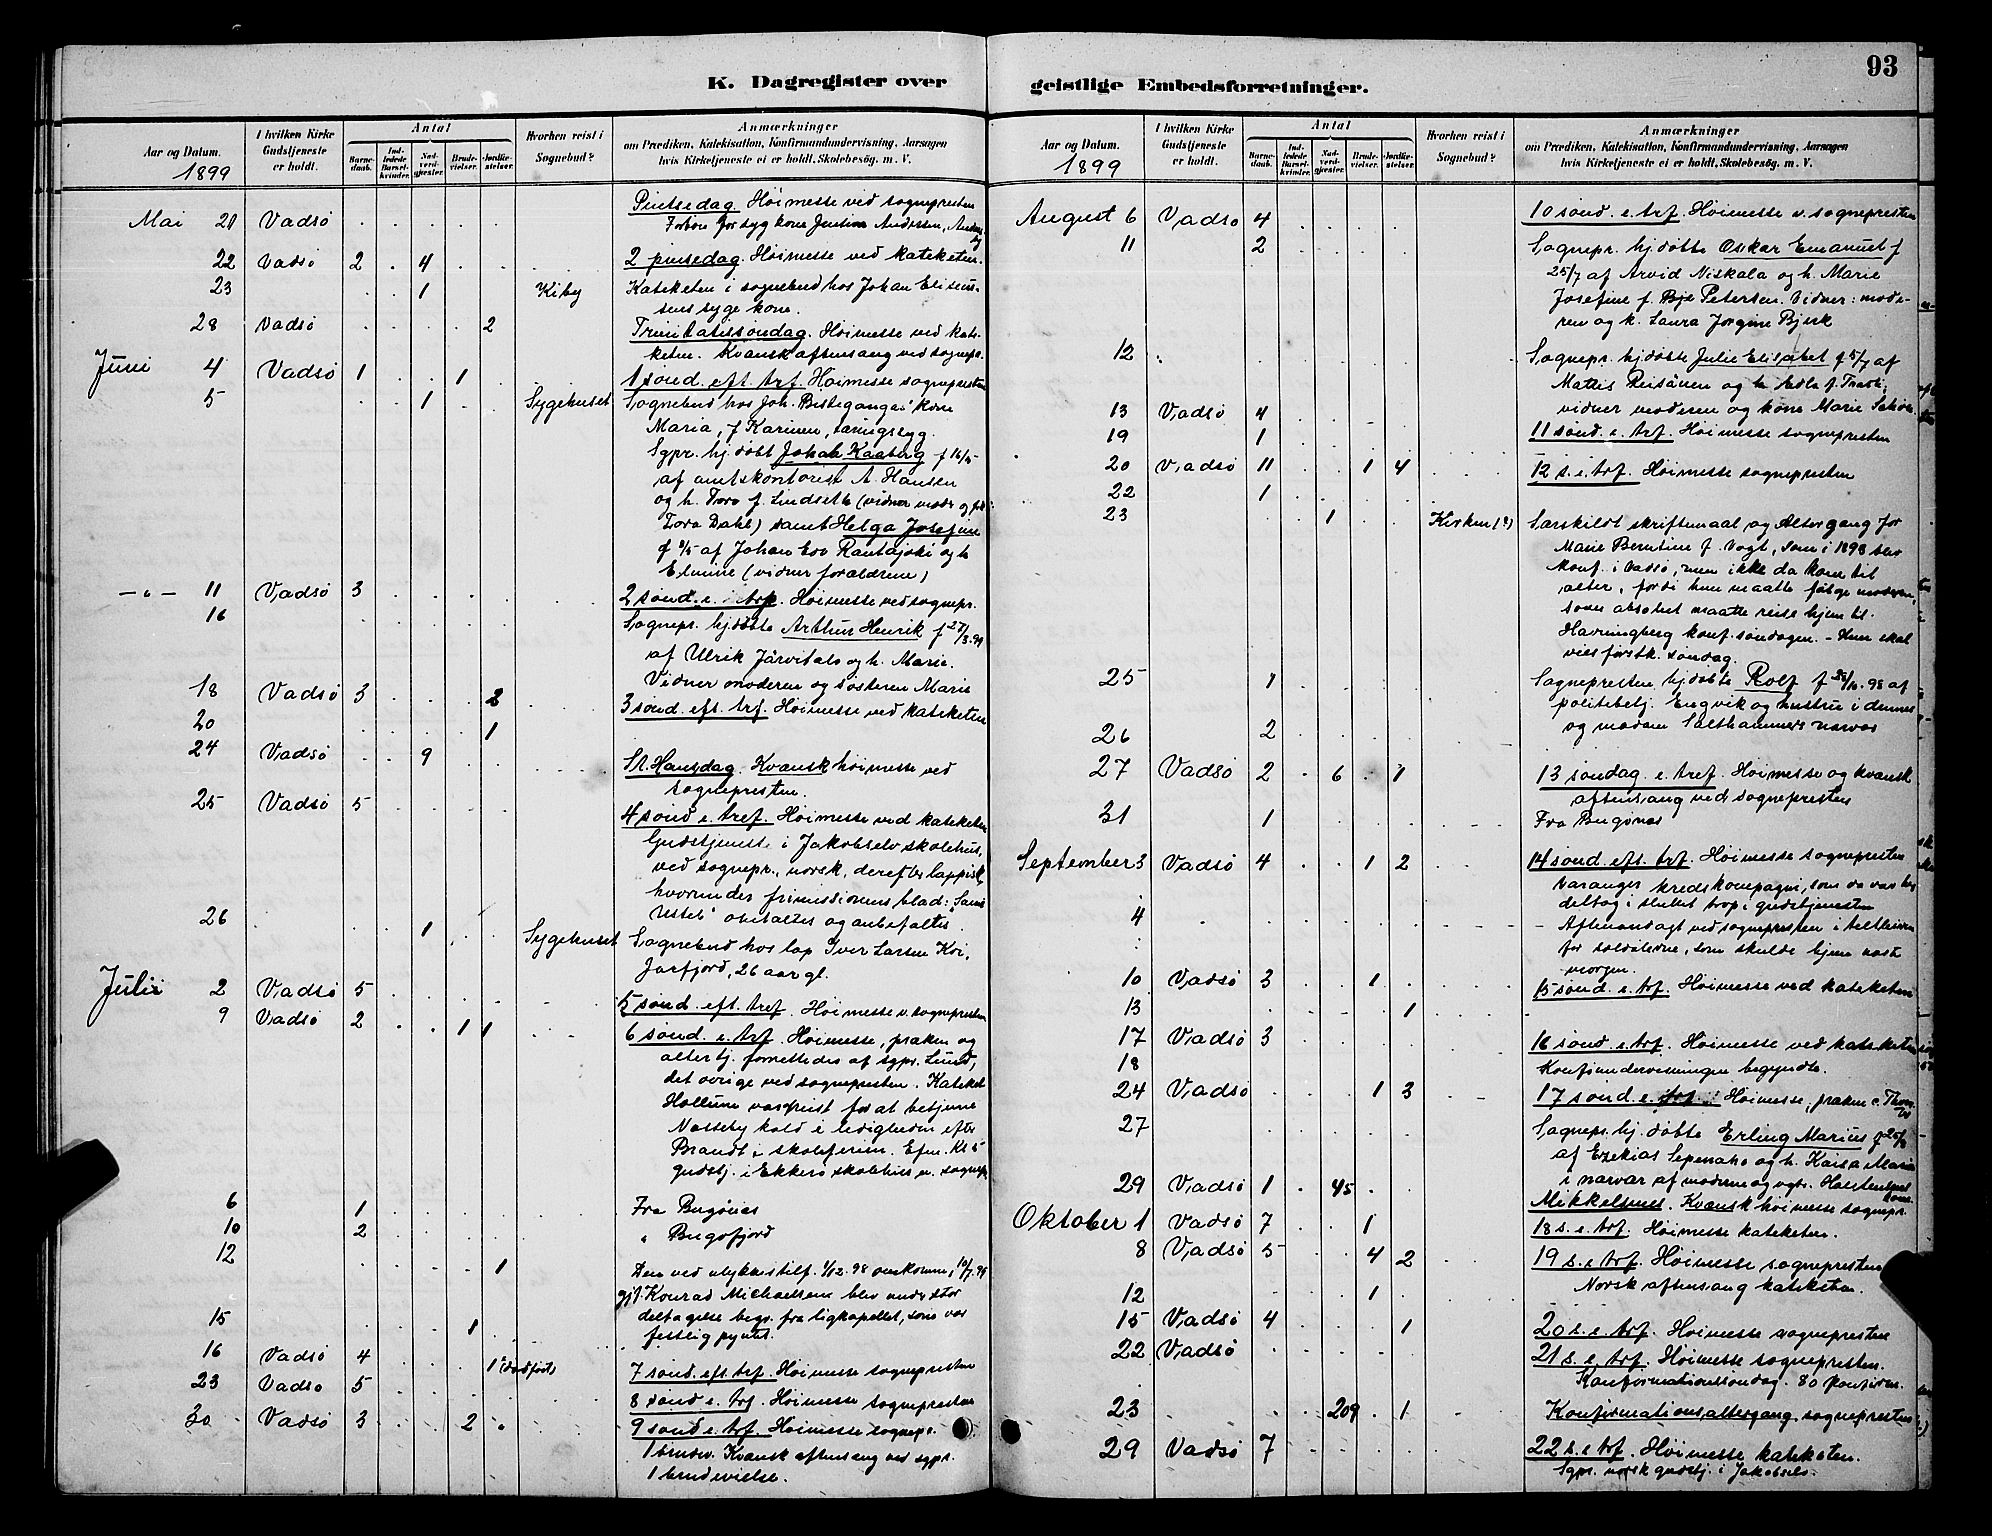 K. Dagregister over
Aar og Datum.
1899
I hvilken Kirke Gudstjeneste er holdt.
Antal
Barnedaab.
Indledede Barselkvinder.
Nadverdgjæster.
Brudevielser.
Jordfæstelser.
Hvorhen reist i Sognebud?
Anmærkninger
om Prædiken, Katekisation, Konfirmandundervisning, Aarsagen
hvis Kirketjeneste ei er holdt, Skolebesøg. m. V.
Mai 21 Vadsø Pintsedag. Høimesse ved sognepresten
Forbøn for syg kone Andersen,
22 Vadsø 2 4 2 pinsedag. Høimesse ved kateketen.
23 1 Kiby Kateketen i sognebud hos Johan Eliseus-
sens syge kone.
28 Vadsø 2 Trinitatissøndag. Høimesse ved kate-
keten. Kvænsk aftensang ved sognepr.
Juni 4 Vadsø 1 1 1 sønd. eft. trf. Høimesse sognepresten
5 1 Sygehuset Sognebud hos Joh. kone
Maria, f. Karinen, tæringssyg.
Sgpr. hj.døbt Johan Kaaberg f 16/5
af amtskontorist A. Hansen
og h. Tora f. Lindseth (vidner moder og frk
Tora Dahl) samt Helga Josefine
f /5 af Johan Rantajoki og h
(vidner forældrene)
-"- 11 Vadsø 3 2 sønd. e. trf. Høimesse ved sognepr.
16 Sognepr. hj.døbte Arthur Henrik f 27/3.99
af Ulrik Järvitalo og h. Marie.
Vidner moderen og søsteren Marie
18 Vadsø 3 2 3 sønd. eft. trf. Høimesse ved kateketen
20 1
24 Vadsø 9 St. Hansdag. Kvænsk høimesse ved
sognepresten.
25 Vadsø 5 4 sønd e. tref. Høimesse ved kateketen
Gudstjeneste i Jakobselv skolehus
ved sognepr., norsk, derefter lappisk,
hvorunder frimissionens blad: "
" omtaltes og anbefaltes.
26 1 Sygehuset Sognebud hos lap Iver Larsen
Jarfjord, 26 aar gl.
Juli 2 Vadsø 5 5 sønd. eft. tref. Høimesse v. sognepresten
9 Vadsø 2 1 1 6 sønd. e. trf. Høimesse, præken og
altertj. forrettedes af sgpr. Lund,
det øvrige ved sognepresten. Kateket
Hollum var reist for at betjene
Nesseby kald i ledigheden efter
Brandt i skoleferien. Efm. Kl 5
gudstj. i Ekkerø skolehus v. sognepr.
6 1 Fra Bugønæs
10 2 " Bugøfjord
12 1 Den ved ulykkestilf. 1/12.98 omkomne, 10/7.99
gjf. Konrad Michaelsen blev under stor
deltagelse begr. fra ligkapellet, som var
festlig pyntet.
15 1
16 Vadsø 4 1 (dødfødt) 7 sønd. eft. trf. Høimesse sognepresten
23 Vadsø 5 8 sønd e. trf. Høimesse sognepresten
30 Vadsø 3 2 9 sønd e. trf. Høimesse sognepr.
1 brudev. Kvænsk aftensang ved sgpr.
1 brudevielse.
geistlige Embedsforretninger.
93
Aar og Datum.
1899
I hvilken Kirke Gudstjeneste er holdt.
Antal
Barnedaab.
Indledede Barselkvinder.
Nadverdgjæster.
Brudevielser.
Jordfæstelser.
Hvorhen reist i Sognebud?
Anmærkninger
om Prædiken, Katekisation, Konfirmandundervisning, Aarsagen
hvis Kirketjeneste ei er holdt, Skolebesøg. m. V.
August 6 Vadsø 4 10 sønd. e. trf. Høimesse v. sognepresten
11 2 Sognepr. hj.døbte Oskar Emanuel f
25/7 af Arvid Niskala og h. Marie
Josefine f. Petersen. Vidner: mode-
ren og k. Laura Jørgine Bjerk
12 Sognepr. hj.døbte Julie Elisabet f 5/7 af
Mattis og h. f.
vidner moderen og kone Marie
13 Vadsø 4 11 sønd. e. trf. Høimesse sognepresten
19 1
20 Vadsø 11 1 4 12 s. e. trf. Høimesse sognepresten
22 1
23 1 Kirken (!) Særskildt skriftemaal og Altergang for
Marie Berntine f. Vogt, som i 1898 blev
konf. i Vadsø, men ikke da kom til
alter, fordi hun maatte følge moderen,
som absolut maatte reise hjem til
Havningberg konf.søndagen. - Hun skal
vies førstk. søndag.
25 1 Sognepresten hj.døbte Rolf f /10.98 af
politibetj. Engvik og hustru i dennes
og madam Salthammers nærvær
26 2
27 Vadsø 2 6 1 13 søndag e. tref. Høimesse og kvænsk
aftensang ved sognepresten
31 1 Fra Bugønæs
September 3 Vadsø 4 1 2 14 sønd. eft. trf. Høimesse sognepresten
Varanger kredskompagni, som da var her
deltog i sluttet trop i gudstjenesten
4 - Aftenandagt ved sognepresten i teltleiren
for soldaterne, som skulde hjem næste
morgen.
10 Vadsø 3 1 15 sønd. e. trf. Høimesse ved kateketen
13 1
17 Vadsø 3 16 sønd. e. trf. Høimesse ved kateketen
18 Konf.undervisningen begyndte.
24 Vadsø 1 3 17 sønd. e. trf. Høimesse, præken c.
27 Sognepr. hj.døbte Erling Marius f 25/8
af Ezekias og h. Kaisa Maria
i nærvær af moderen og
29 Vadsø 1 45 Mikkelsmes. Kvænsk høimesse sognepr.
Oktober 1 Vadsø 7 1 18 s. e. trf. Høimesse kateketen.
8 Vadsø 5 4 2 19 s. e trf. Høimesse sognepresten
Norsk aftensang kateketen.
12 1
15 Vadsø 4 1 20 s. e. trf. Høimesse sognepresten
22 Vadsø 21 s. e. trf. Høimesse sognepresten.
Konfirmationssøndag. 80 konfirm.
23 209 1 Konfirmationsaltergang sognepresten
29 Vadsø 7 22 s. e. trf. Høimesse kateketen.
Sgpr. norsk gudstj. i Jakobselv.